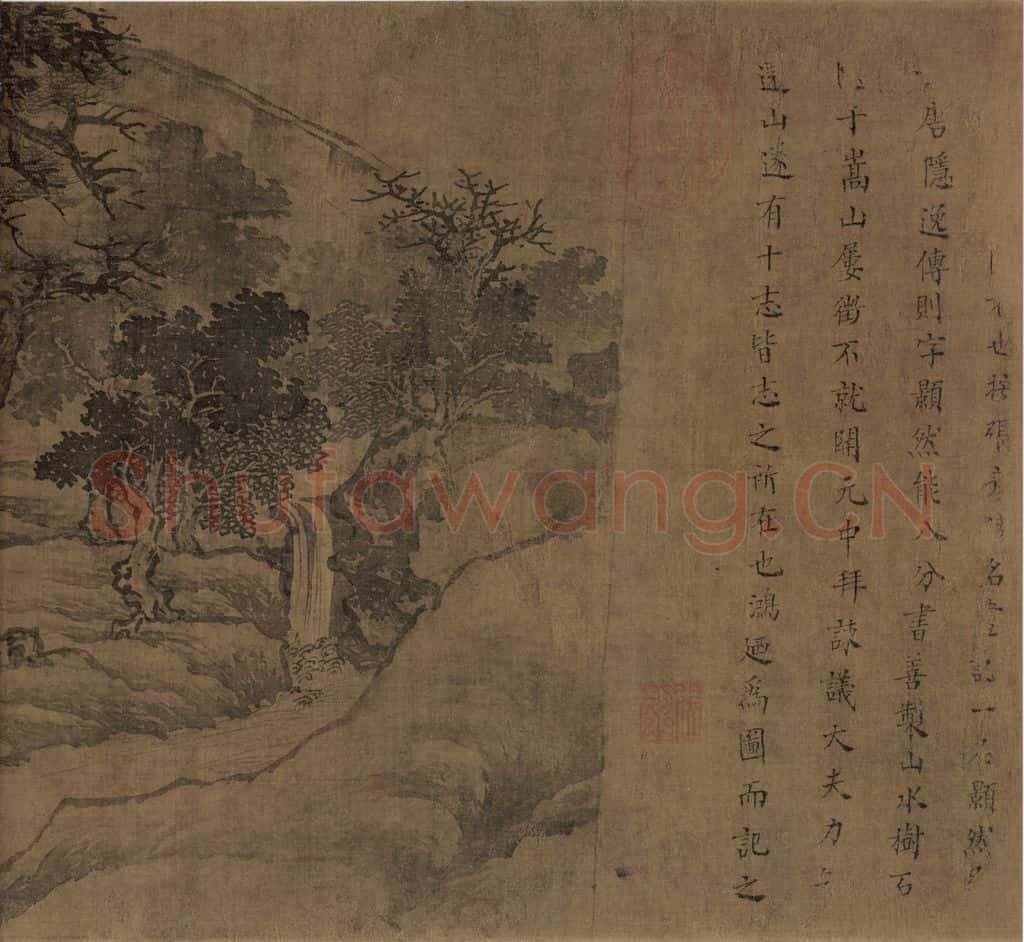 也按張彥遠名畫記一名顥然
唐隱逸傳則字顥然能八分書善製山水樹石
于嵩山屢徵不就開元中拜諫議大夫力
還山遂有十志皆志之所在也鴻廼爲圖而記之
Shufawang.CN